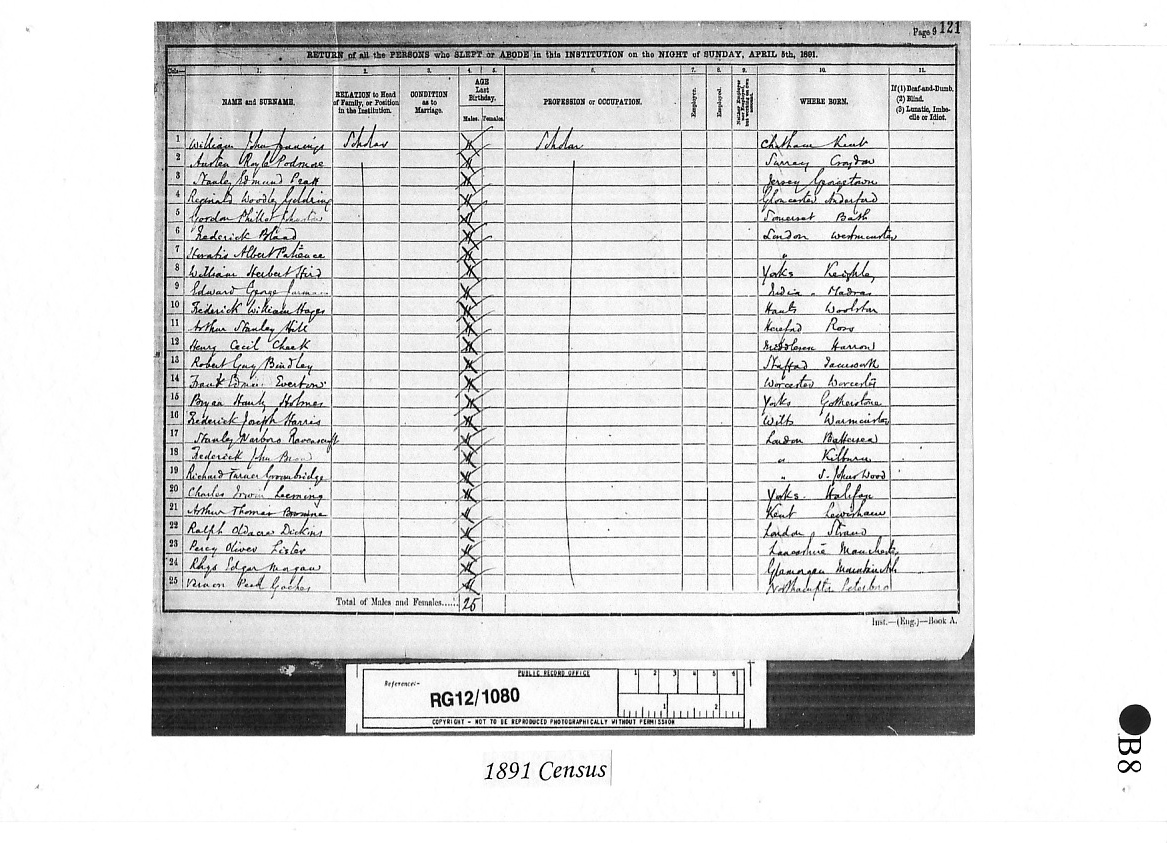 Page 9 121
RETURN of all the PERSONS who SLEPT or ABODE in this INSTITUTION on the NIGHT of SUNDAY, APRIL 5th, 1891.
Cols— 1. 2. 3. 4. 5. 6. 7. 8. 9. 10. 11.
NAME and SURNAME. RELATION to Head of Family, or Position in the Institution. CONDITION as to Marriage. AGE Last Birthday. Males. Females. PROFESSION or OCCUPATION. Employer. Employed. Neither Employer nor Employed, but working on own account. WHERE BORN. If (1) Deaf-and-Dumb. (2) Blind. (3) Lunatic, Imbecile or Idiot.
1 William John Jennings Scholar Scholar Chatham Kent
2 Austen Royle Podmore Surrey Croydon
3 Stanley Edmund Pratt Jersey Georgetown
4 Reginald Woodley Goldring Gloucester
5 Gordon Phillot Somerset Bath
6 Frederick Bland London Westminster
7 Horatio Albert Patience "
8 William Herbert Hird Yorks Keighley
9 Edward George India " Madras
10 Frederick William Hayes Hants Woolston
11 Arthur Stanley Hill Hereford Ross
12 Henry Cecil Cheek Middlesex Harrow
13 Robert Guy Bindley Stafford Tamworth
14 Frank Everton Worcester Worcester
15 Bryan Holmes Yorks
16 Frederick Joseph Harris Wilts Warminster
17 Stanley Marboro Ravenscroft London Battersea
18 Frederick John " Kilburn
19 Richard Turner Groombridge " S. Johns Wood
20 Charles Irwin Leeming Yorks. Halifax
21 Arthur Thomas Browne Kent Lewisham
22 Ralph Oldacre Dickins London Strand
23 Percy Oliver Lister Lancashire Manchester
24 Rhys Edgar Morgan Glamorgan
25 Vernon Peck Gaches Northampton Peterboro
Total of Males and Females...... 25
Inst.—(Eng.)—Book A.
PUBLIC RECORD OFFICE
Reference:-
RG12/1080
1 2 3 4 5 6
1 2
COPYRIGHT - NOT TO BE REPRODUCED PHOTOGRAPHICALLY WITHOUT PERMISSION
1891 Census
B8